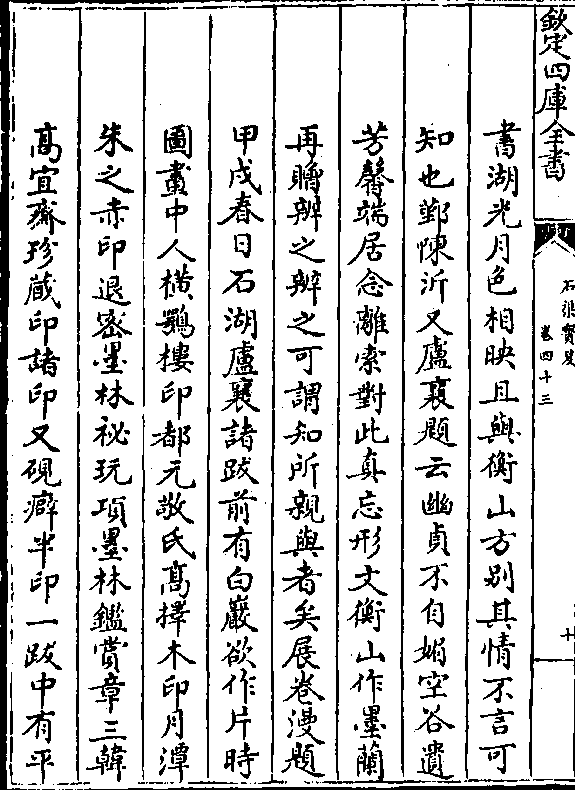 欽定四庫全書
石渠寳笈
卷四十三
十
書湖光月色相映且與衡山方别其情不言可
知也鄞陳沂又盧襄題云幽貞不自媚空谷遺
芳馨端居念離索對此真忘形文衡山作墨蘭
再贈辨之辨之可謂知所親與者矣展卷漫題
甲戌春日石湖盧襄諸跋前有白巖欲作片時
圖畫中人橫鶚樓印都元敬氏髙擇木印月潭
朱之赤印退密墨林祕玩項墨林鑑賞章三韓
髙宜齋珍藏印諸印又硯癖半印一跋中有平